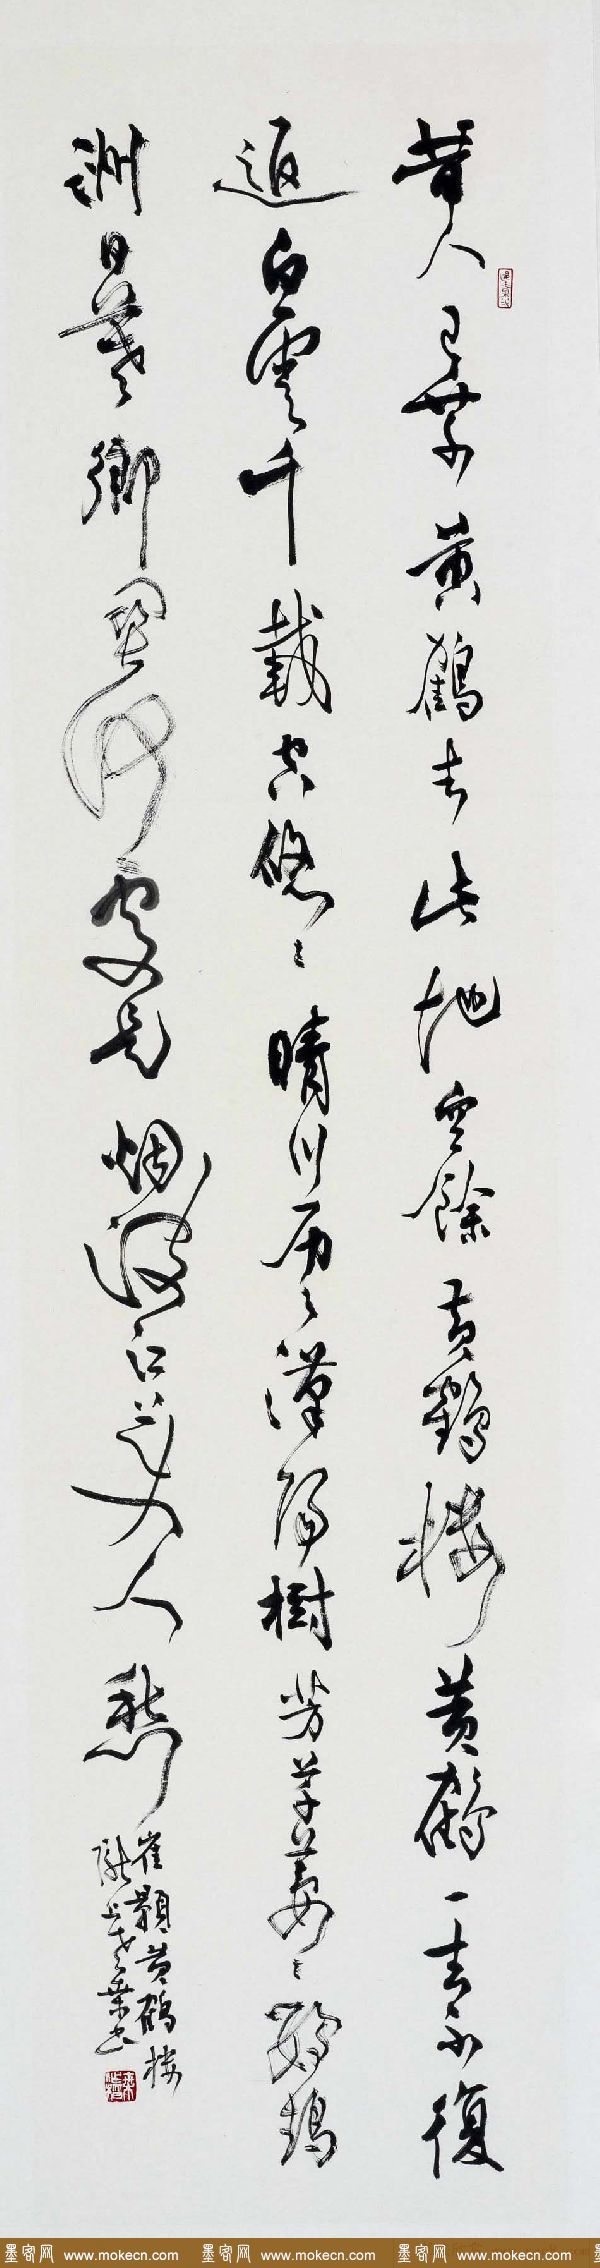 昔人已乘黄鶴去此地空餘黄鶴樓黄鶴一去不復
返白雲千載空悠〻晴川历〻漢陽樹芳草萋〻鸚鵡
洲日暮鄉關何處是烟波江上使人愁
崔顥黄鶴樓
隴上
墨客网 www.mokecn.com 墨客网 www.mokecn.com 墨客网 www.mokecn.com